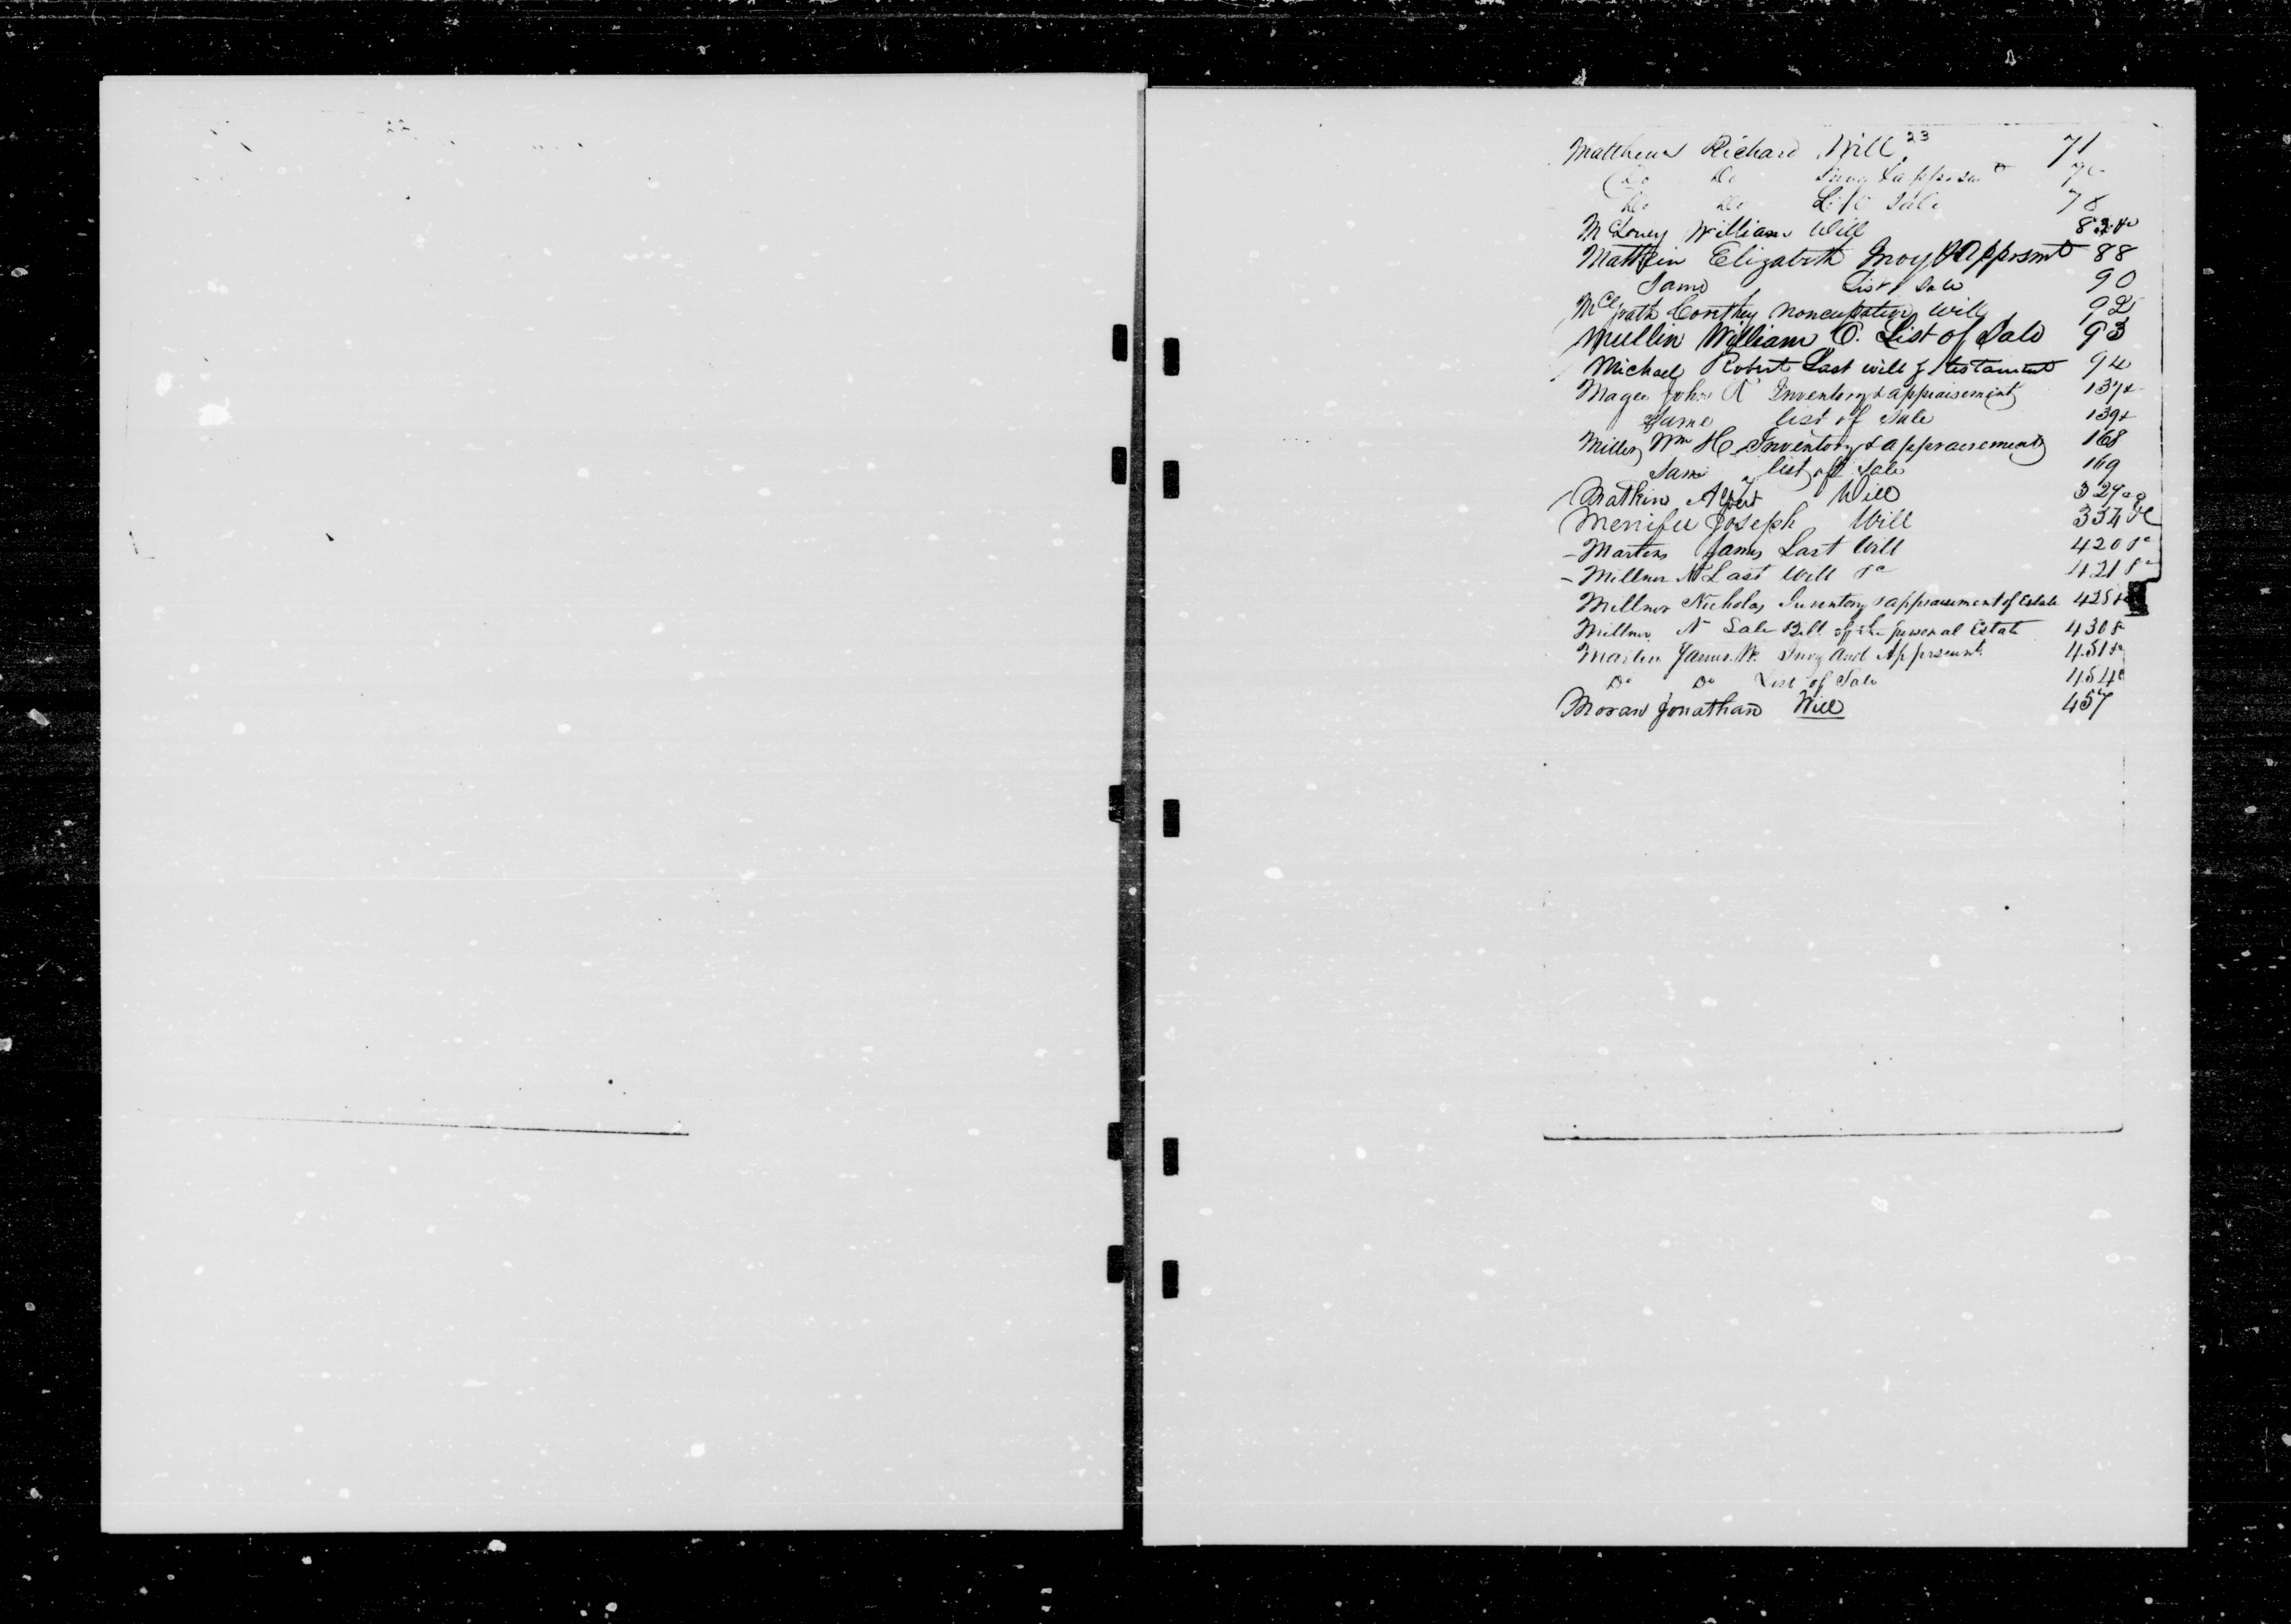 22
23
Matthews Richard Will 71
Do Do Invy & apprsmt
Do Do List Sale 78
McLoney William Will 82 &c
Matkin Elizabeth Invoy & Apprsmt 88
Same List of Sale 90
McGrath noncupative will 92
Mullin William O. List of Sale 93
Michael Robert Last will & testament 94
Magee John R Inventory & appraisement 137 &
Same list of Sale 139 &
Miller Wm H Inventory & appraisement 168
Same list of Sale 169
Matkin Will 329
Menifee Joseph Will 334 &c
Martin James Last Will 420 &c
Millner N Last Will &c 421 &c
Millner Nicholas Inventory & appraisement of Estate 425 &c
Millner N Sale Bill of the personal Estate 430 &
Martin James W. Invy And Apprsmt. 451 &c
Do Do List of Sale 454
Moran Jonathan Will 457